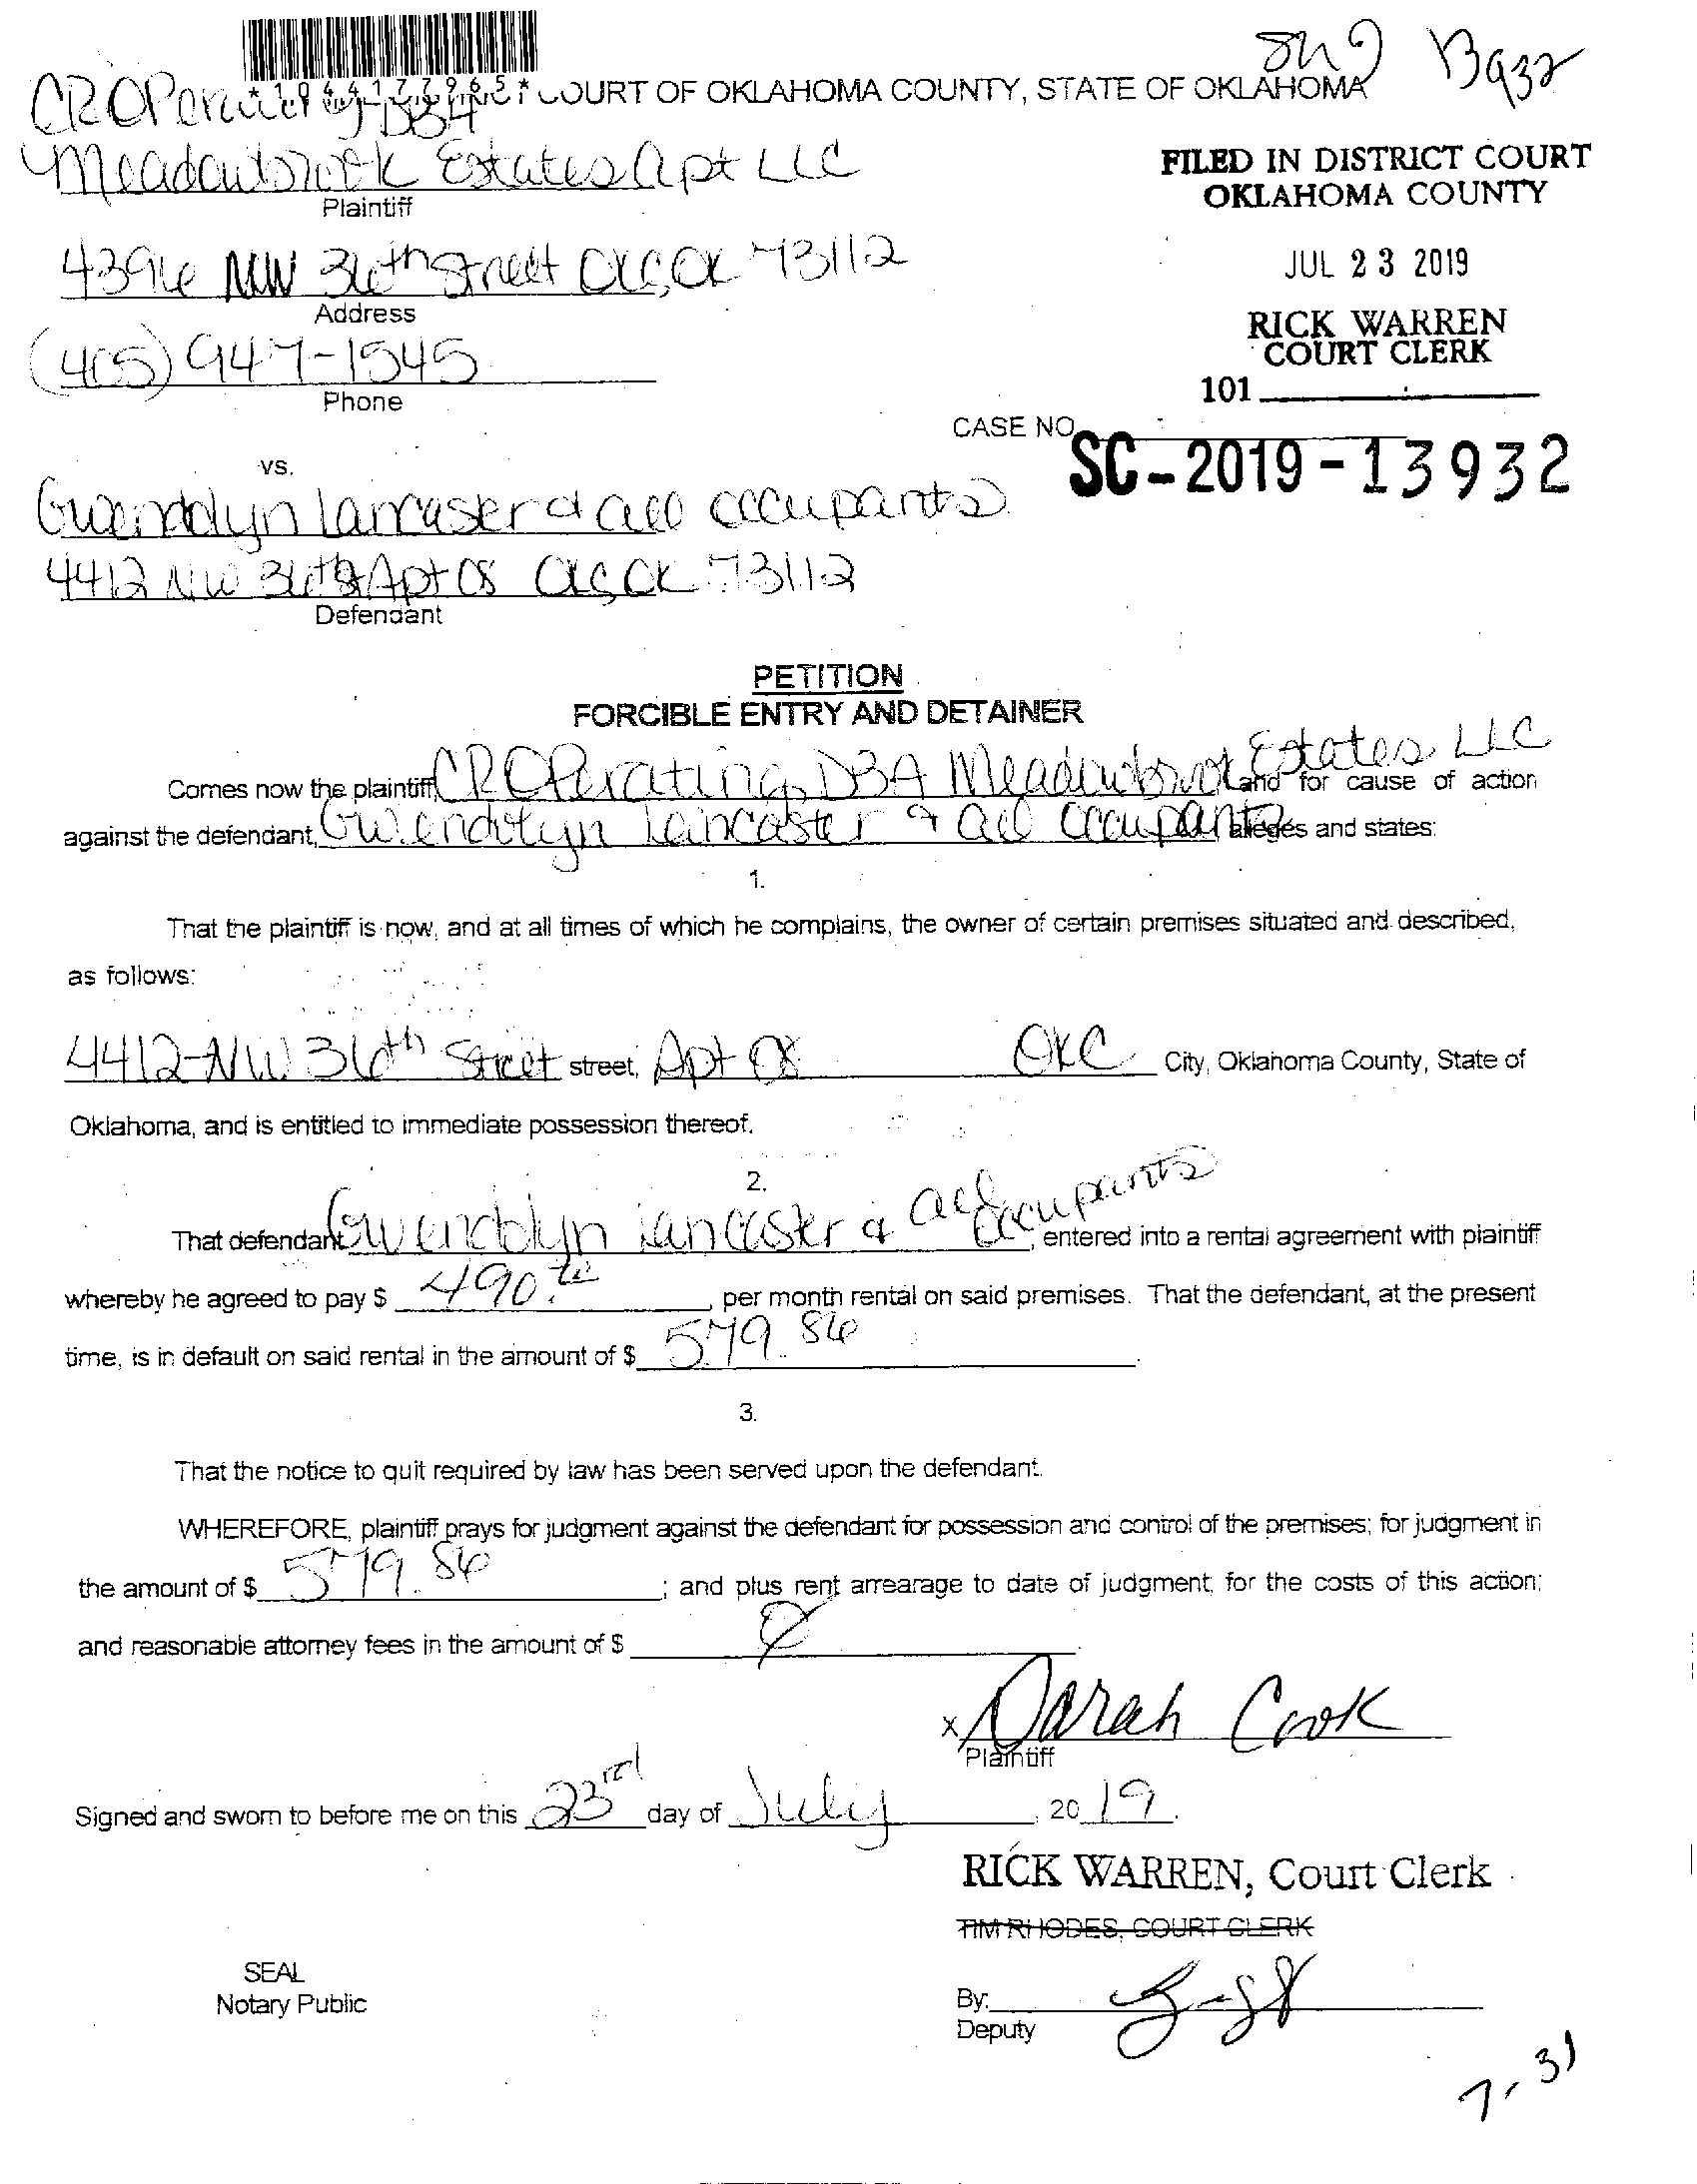 *1044177965*
COURT OF OKLAHOMA COUNTY, STATE OF OKLAHOMA
13932
CROPerating DBA
Meadowbrook Estates Apt LLC
Plaintiff
FILED IN DISTRICT COURT
OKLAHOMA COUNTY
4396 NW 36th Street OKC, OK 73112
Address
JUL 23 2019
(405) 947-1545
Phone
RICK WARREN
COURT CLERK
101
CASE NO.
SC-2019-13932
vs.
Gwendolyn Lancaster & all occupants
4412 NW 36th Apt 08 OKC OK 73112
Defendant
PETITION
FORCIBLE ENTRY AND DETAINER
Comes now the plaintiff, CROPerating DBA Meadowbrook Estates LLC and for cause of action
against the defendant, Gwendolyn Lancaster & all occupants alleges and states:
1.
That the plaintiff is now, and at all times of which he complains, the owner of certain premises situated and described,
as follows:
4412 NW 36th Street street, Apt 08 OKC City, Oklahoma County, State of
Oklahoma, and is entitled to immediate possession thereof.
2.
That defendant Gwendolyn Lancaster & all occupants, entered into a rental agreement with plaintiff
whereby he agreed to pay $ 490. , per month rental on said premises. That the defendant, at the present
time, is in default on said rental in the amount of $ 579.86.
3.
That the notice to quit required by law has been served upon the defendant.
WHEREFORE, plaintiff prays for judgment against the defendant for possession and control of the premises; for judgment in
the amount of $ 579.86 ; and plus rent arrearage to date of judgment, for the costs of this action;
and reasonable attorney fees in the amount of $ Ø
x Darah Cook
Plaintiff
Signed and sworn to before me on this 23rd day of July, 2019.
RICK WARREN, Court Clerk
TIM RHODES, COURT CLERK
SEAL
Notary Public
By:
Deputy
7-31